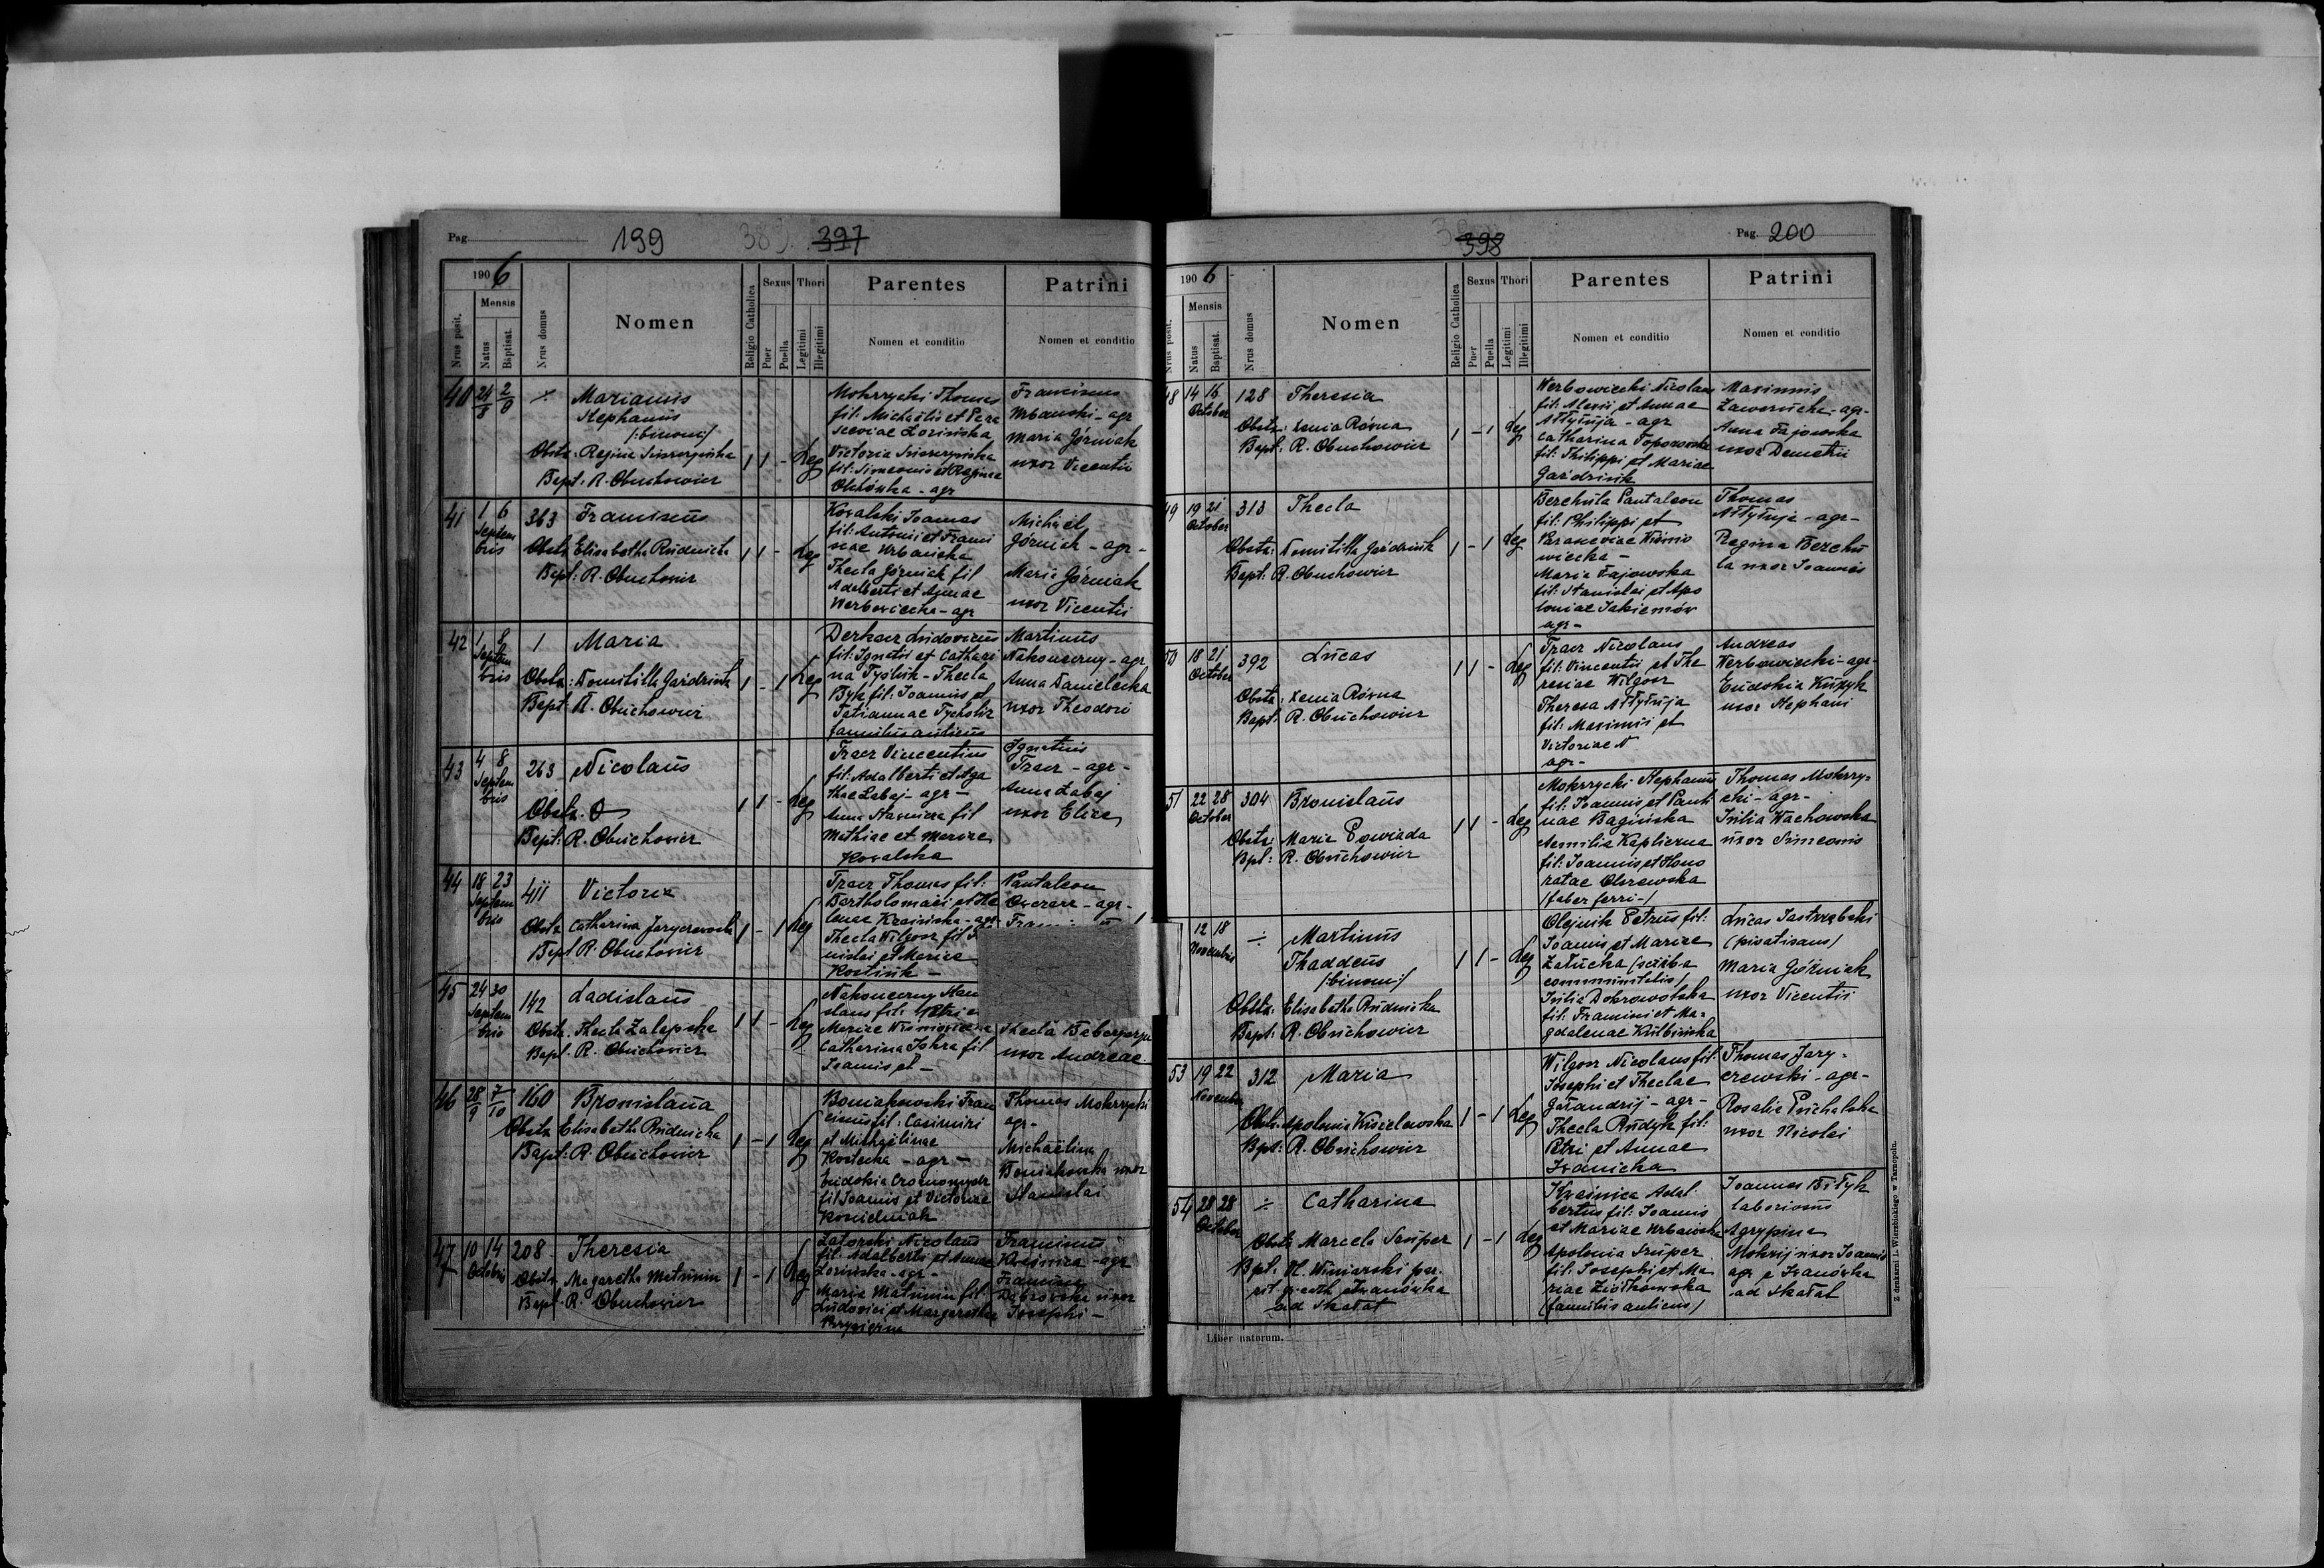 Pag. 199 397
1906
Nrus posit.
Mensis
Natus
Baptisat.
Nrus domus
Nomen
Religio Catholica
Sexus
Puer
Puella
Thori
Legitimi
Illegitimi
Parentes
Nomen et conditio
Patrini
Nomen et conditio
40 24/8 2/9 Marianus
Stephanus
/:binom:/
Obstx: Regina
Bapt: R. Obuchowicz
1 1 - Leg
Mokrzycki Thomas
fil: Michaelis et Para
sceviae Łozińska
Victoria
fil: Simeonis et Reginae
agr
Franciscus
Urbanski - agr
Maria Górniak
uxor Vicentii
41 1 6
Septem
bris
363 Franciscus
Obstx Elisabetha Rudnicka
Bapt: R. Obuchowicz
1 1 - Leg
Kowalski Joannes
fil: Antonii et Franci
scae Urbanska
Thecla Górniak fil
Adalberti et Agnae
Werbowiecka - agr
Michael
Górniak - agr -
Maria Górniak
uxor Vicentii
42 1 8
Septem
bris
1 Maria
Obstx: Domitilla Gaździuk
Bapt: R. Obuchowicz
1 - 1 Leg
Derkacz Ludovicus
fil: Ignatii et Cathari
na Tyśluk - Thecla
Byk fil: Joannis et
Tatiannae
famulus aulicus
Martinus
Nakoneczny - agr
Anna Danielecka
uxor Theodori
43 4 8
Septem
bris
263 Nicolaus
Obstx. O
Bapt: R. Obuchowicz
1 1 - Leg
Tracz Vincentius
fil: Adalberti et Aga
thae Łabaj - agr -
Anna fil
Mathiae et Mariae
Kowalska
Ignatius
Tracz - agr -
Anna Łabaj
uxor Eliae
44 18 23
Septem
bris
411 Victoria
Obstx Catharina Jaryczewska
Bapt R. Obuchowicz
1 - 1 Leg
Tracz Thomas fil:
Bartholomaei et He
lenae Kraśnicka - agr
Thecla Wilgosz fil
nislai et Mariae
Kostiuk -
Pantaleon
Owczarz - agr -
45 24 30
Septem
bris
142 Ladislaus
Obstx. Thecla Zalepska
Bapt. R. Obuchowicz
1 1 - Leg
Nakoneczny Stani
slaus fil: Petri
Mariae
Catharina fil
Joannis et -
Thecla
uxor Andreae
46 28/9 7/10 160 Bronislaua
Obstx Elisabetha Rudnicka
Bapt: R. Obuchowicz
1 - 1 Leg
Boniakowski Fran
ciscus fil: Casimiri
et Michaëlinae
Kostecka - agr -
Eudokia
fil Joannis et Victoriae
Kościelniak
Thomas Mokrzycki
agr -
Michaëlina
Boniakowska uxor
Stanislai
47 10 14
Octobris
208 Theresia
Obstx Magaretha Matusin
Bapt. R. Obuchowicz
1 - 1 Leg
Zatorski Nicolaus
fil: Adalberti et Annae
Łozińska - agr -
Maria Matusin fil:
Ludovici et Margaretha
Franciscus
Kraśnica - agr
Francisca
Dąbrowska uxor
Josephi -
398 Pag. 200
1906
Nrus posit.
Mensis
Natus
Baptisat.
Nrus domus
Nomen
Religio Catholica
Sexus
Puer
Puella
Thori
Legitimi
Illegitimi
Parentes
Nomen et conditio
Patrini
Nomen et conditio
48 14 16
October
128 Theresia
Obstx: Xenia Rózna
Bapt: R. Obuchowicz
1 - 1 Leg
Werbowiecki Nicolaus
fil: Alexii et Annae
Ałłyłuja - agr
Catharina Toporowska
fil: Philippi et Mariae
Gaździuk
Maximus
Zawerucha - agr -
Anna Fajowska
uxor Demetrii
49 19 21
October
313 Thecla
Obstx: Domitilla Gaździuk
Bapt: R. Obuchowicz
1 - 1 Leg
Berehula Pantaleon
fil: Philippi et
Parasceviae Wiśnio
wiecka -
Maria Fajowska
fil: Stanislai et Apo
loniae Jakiemów
agr -
Thomas
Ałłyłuja - agr -
Regina Berehu
la uxor Joannis
50 18 21
October
392 Lucas
Obstx: Xenia Rózna
Bapt: R. Obuchowicz
1 1 - Leg
Tracz Nicolaus
fil: Vincentii et The
resiae Wilgosz
Theresa Ałłyłuja
fil: Maximi et
Victoriae N
agr -
Andreas
Werbowiecki - agr -
Eudokia Kuzyk
uxor Stephani
51 22 28
October
304 Bronislaus
Obstx: Maria Powiada
Bpt: R. Obuchowicz
1 1 - Leg
Mokrzycki Stephanus
fil: Joannis et Paul
nae Bagińska
Aemilia Kapliczna
fil: Joannis et Hono
ratae Olszewska
/faber ferri-/
Thomas Mokrzy=
cki - agr -
Julia Wachowska
uxor Simeonis
12 18
Novembris
÷ Martinus
Thaddeus
/binom:/
Obstx: Elisabetha Rudnicka
Bapt: R. Obuchowicz
1 1 - Leg
Olejnik Petrus fil:
Joannis et Mariae
Załucka (scriba
communitatis)
Julia Dobrowolska
fil: Francisci et Ma=
gdalenae Kulbińska
Lucas Jastrzębski
(privatisans)
Maria Górniak
uxor Vicentii
53 19 22
November
312 Maria
Obstx: Apolonia Kisielewska
Bpt: R. Obuchowicz
1 - 1 Leg
Wilgosz Nicolaus fil:
Josephi et Theclae
Garandzij - agr -
Thecla Rudyk fil:
Petri et Annae
Iwanicka
Thomas Jary=
czewski - agr -
Rosalia Puchalska
uxor Nicolai
54 28 28
October
÷ Catharina
Obstx Marcela Super
Bpt: N. Winiarski par.
rit. graeth. Iwanówka
ad Skałat
1 - 1 Leg
Kraśnica Adal
bertus fil: Joannis
et Mariae Urbańska
Apolonia Super
fil: Josephi et Ma
riae Ziółkowska
(famulus aulicus)
Joannes Biłyk
laboriosus
Agrypina
Mokrij uxor Joannis
agr e Iwanówka
ad Skałat
Liber natorum.
Z drukarni L. Wierzbickiego w Tarnopolu.